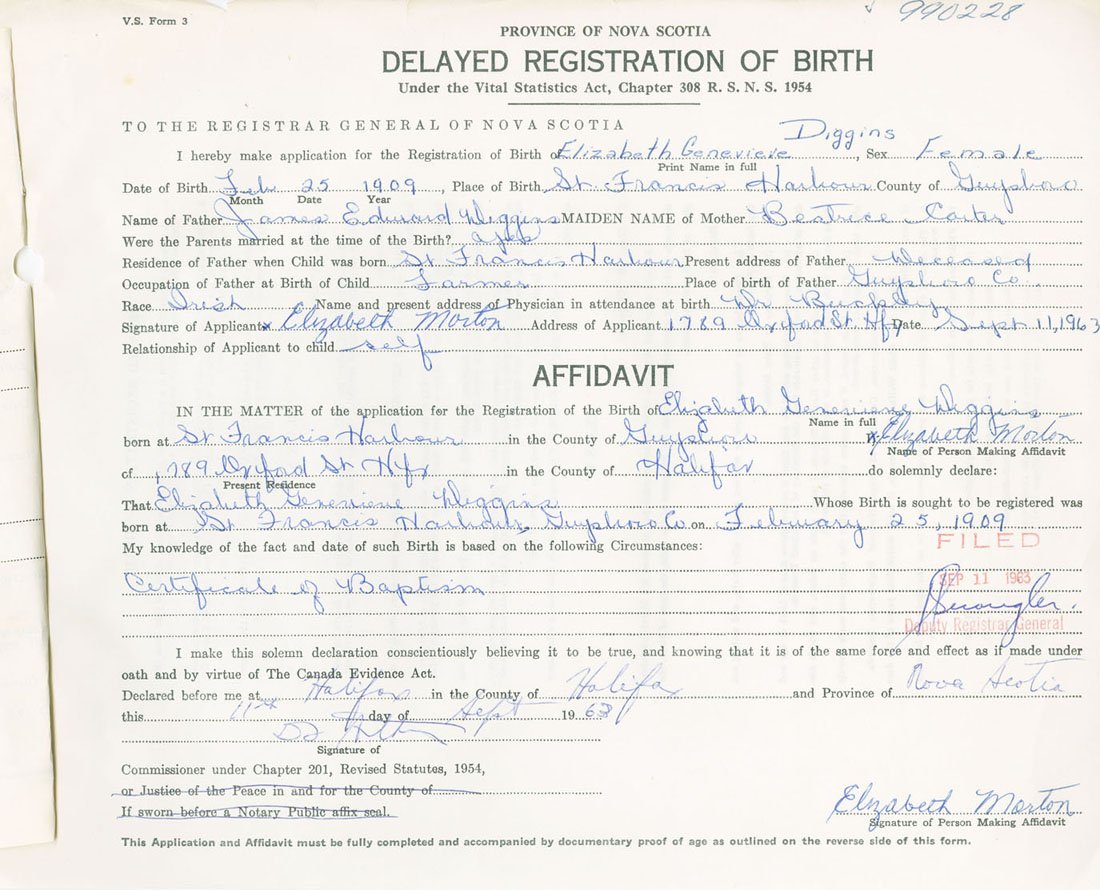 V.S. Form 3
990228
PROVINCE OF NOVA SCOTIA
DELAYED REGISTRATION OF BIRTH
Under the Vital Statistics Act, Chapter 308 R. S. N. S. 1954
TO THE REGISTRAR GENERAL OF NOVA SCOTIA
Diggins
I hereby make application for the Registration of Birth of Elizabeth Genevieve, Sex Female
Print Name in full
Date of Birth Feb 25 1909, Place of Birth St. Francis Harbour County of Guysboro
Month Date Year
Name of Father James Edward Diggins MAIDEN NAME of Mother Beatrice Carter
Were the Parents married at the time of the Birth? yes
Residence of Father when Child was born St Francis Harbour Present address of Father Deceased
Occupation of Father at Birth of Child Farmer Place of birth of Father Guysboro Co.
Race Irish Name and present address of Physician in attendance at birth Dr Buckley
Signature of Applicant x Elizabeth Morton Address of Applicant 1789 Oxford St. Hfx Date Sept 11, 1963
Relationship of Applicant to child self
AFFIDAVIT
IN THE MATTER of the application for the Registration of the Birth of Elizabeth Genevieve Diggins
Name in full
born at St Francis Harbour in the County of Guysboro Elizabeth Morton
Name of Person Making Affidavit
of 1789 Oxford St Hfx in the County of Halifax do solemnly declare:
Present Residence
That Elizabeth Genevieve Diggins Whose Birth is sought to be registered was
born at St Francis Harbour, Guysboro Co on February 25, 1909
FILED
My knowledge of the fact and date of such Birth is based on the following Circumstances:
SEP 11 1963
Certificate of Baptism
Deputy Registrar General
I make this solemn declaration conscientiously believing it to be true, and knowing that it is of the same force and effect as if made under
oath and by virtue of The Canada Evidence Act.
Declared before me at Halifax in the County of Halifax and Province of Nova Scotia
this 11th day of Sept 1963
Signature of
Commissioner under Chapter 201, Revised Statutes, 1954,
or Justice of the Peace in and for the County of
If sworn before a Notary Public affix seal.
Elizabeth Morton
Signature of Person Making Affidavit
This Application and Affidavit must be fully completed and accompanied by documentary proof of age as outlined on the reverse side of this form.